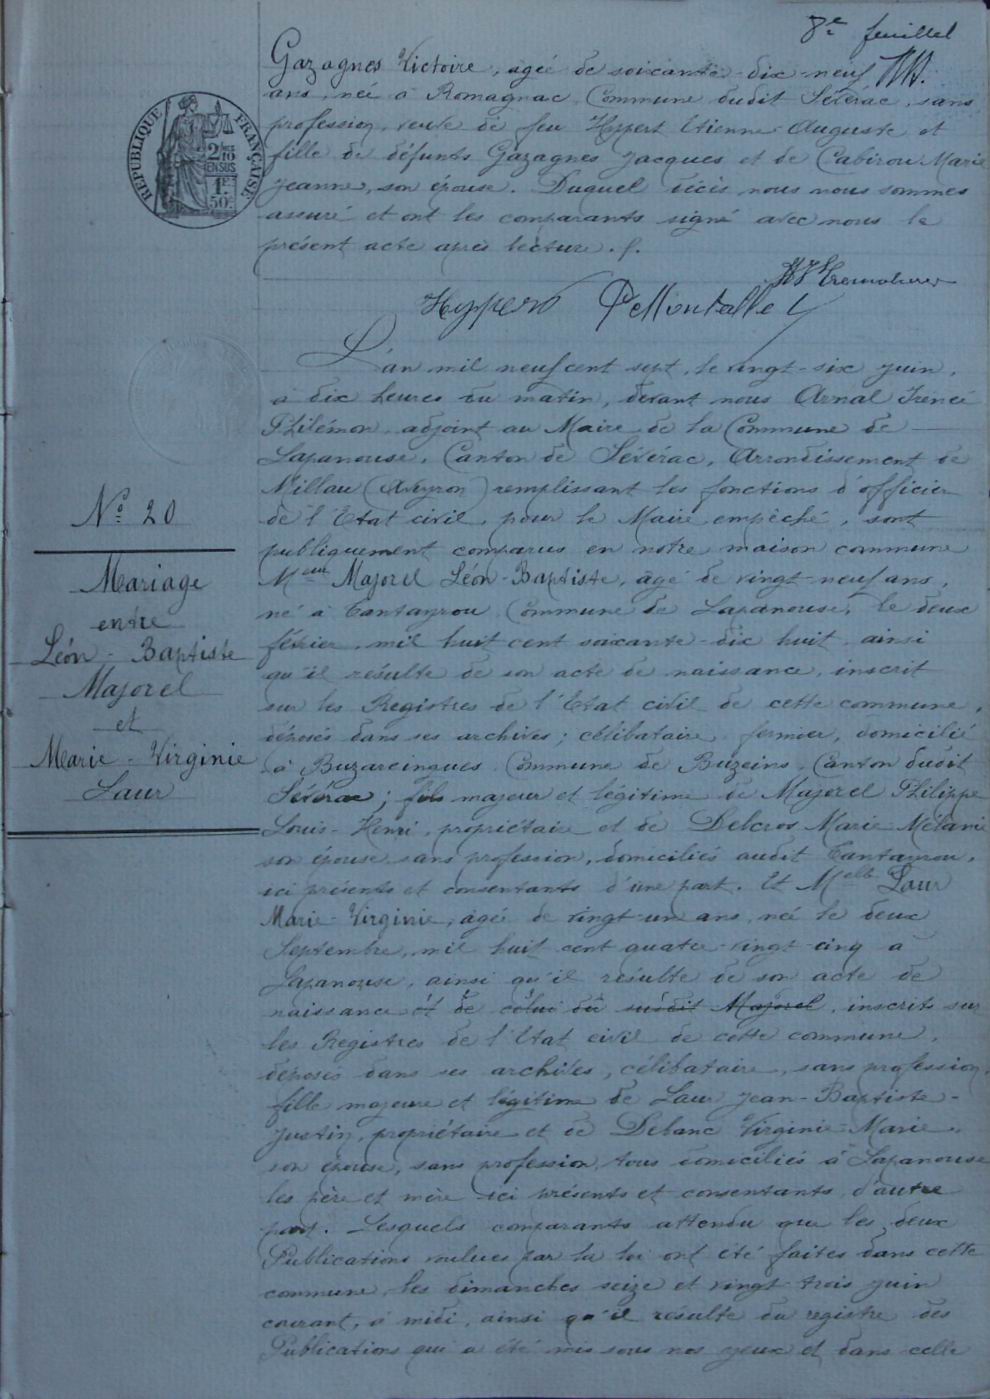 8e feuillet
Gazagnes Victoire, agée de soixante-dix-neuf
ans, née à Romagnac, Commune dudit Sévérac, sans
profession, veuve de feu Hyppert Etienne Auguste et
fille de défunts Gazagnes Jacques et de Cabirou Marie
Jeanne, son épouse. Duquel décès nous nous sommes
assuré et ont les comparants signé avec nous le
présent acte après lecture.
RÉPUBLIQUE FRANÇAISE
2/10 EN SUS
1F 50c
Hyppert
L'an mil neuf cent sept, le vingt-six juin,
à dix heures du matin, devant nous Arnal Irénée
Philémon, adjoint au Maire de la Commune de
Lapanouse, Canton de Sévérac, Arrondissement de
Millau (Aveyron) remplissant les fonctions d'officier
de l'Etat civil, pour le Maire empêché, sont
publiquement comparus en notre maison commune
Meur Majorel Léon-Baptiste, âgé de vingt-neuf ans,
né à Tantayrou, Commune de Lapanouse, le deux
février, mil huit cent soixante-dix huit, ainsi
qu'il résulte de son acte de naissance, inscrit
sur les Registres de l'Etat civil de cette commune,
déposés dans ses archives; célibataire, fermier, domicilié
à Buzareingues, Commune de Buzeins, Canton dudit
Sévérac; fils majeur et légitime de Majorel Philippe
Louis-Henri, propriétaire et de Delcros Marie Mélanie
son épouse, sans profession, domiciliés audit Tantayrou,
ici présents et consentants d'une part. Et Melle Laur
Marie-Virginie, âgée de vingt-un ans, née le deux
Septembre, mil huit cent quatre-vingt-cinq à
Lapanouse, ainsi qu'il résulte de son acte de
naissance et de celui du susdit Majorel, inscrits sur
les Registres de l'Etat civil de cette commune,
déposés dans ses archives, célibataire, sans profession,
fille majeure et légitime de Laur Jean-Baptiste-
Justin, propriétaire et de Delanc Virginie-Marie,
son épouse, sans profession, tous domiciliés à Lapanouse
les père et mère ici présents et consentants, d'autre
part. Lesquels comparants attendu que les deux
Publications voulues par la loi ont été faites dans cette
commune les dimanches seize et vingt-trois juin
courant, à midi, ainsi qu'il résulte du registre des
Publications qui a été mis sous nos yeux et dans celle
No 20
Mariage
entre
Léon-Baptiste
Majorel
et
Marie-Virginie
Laur